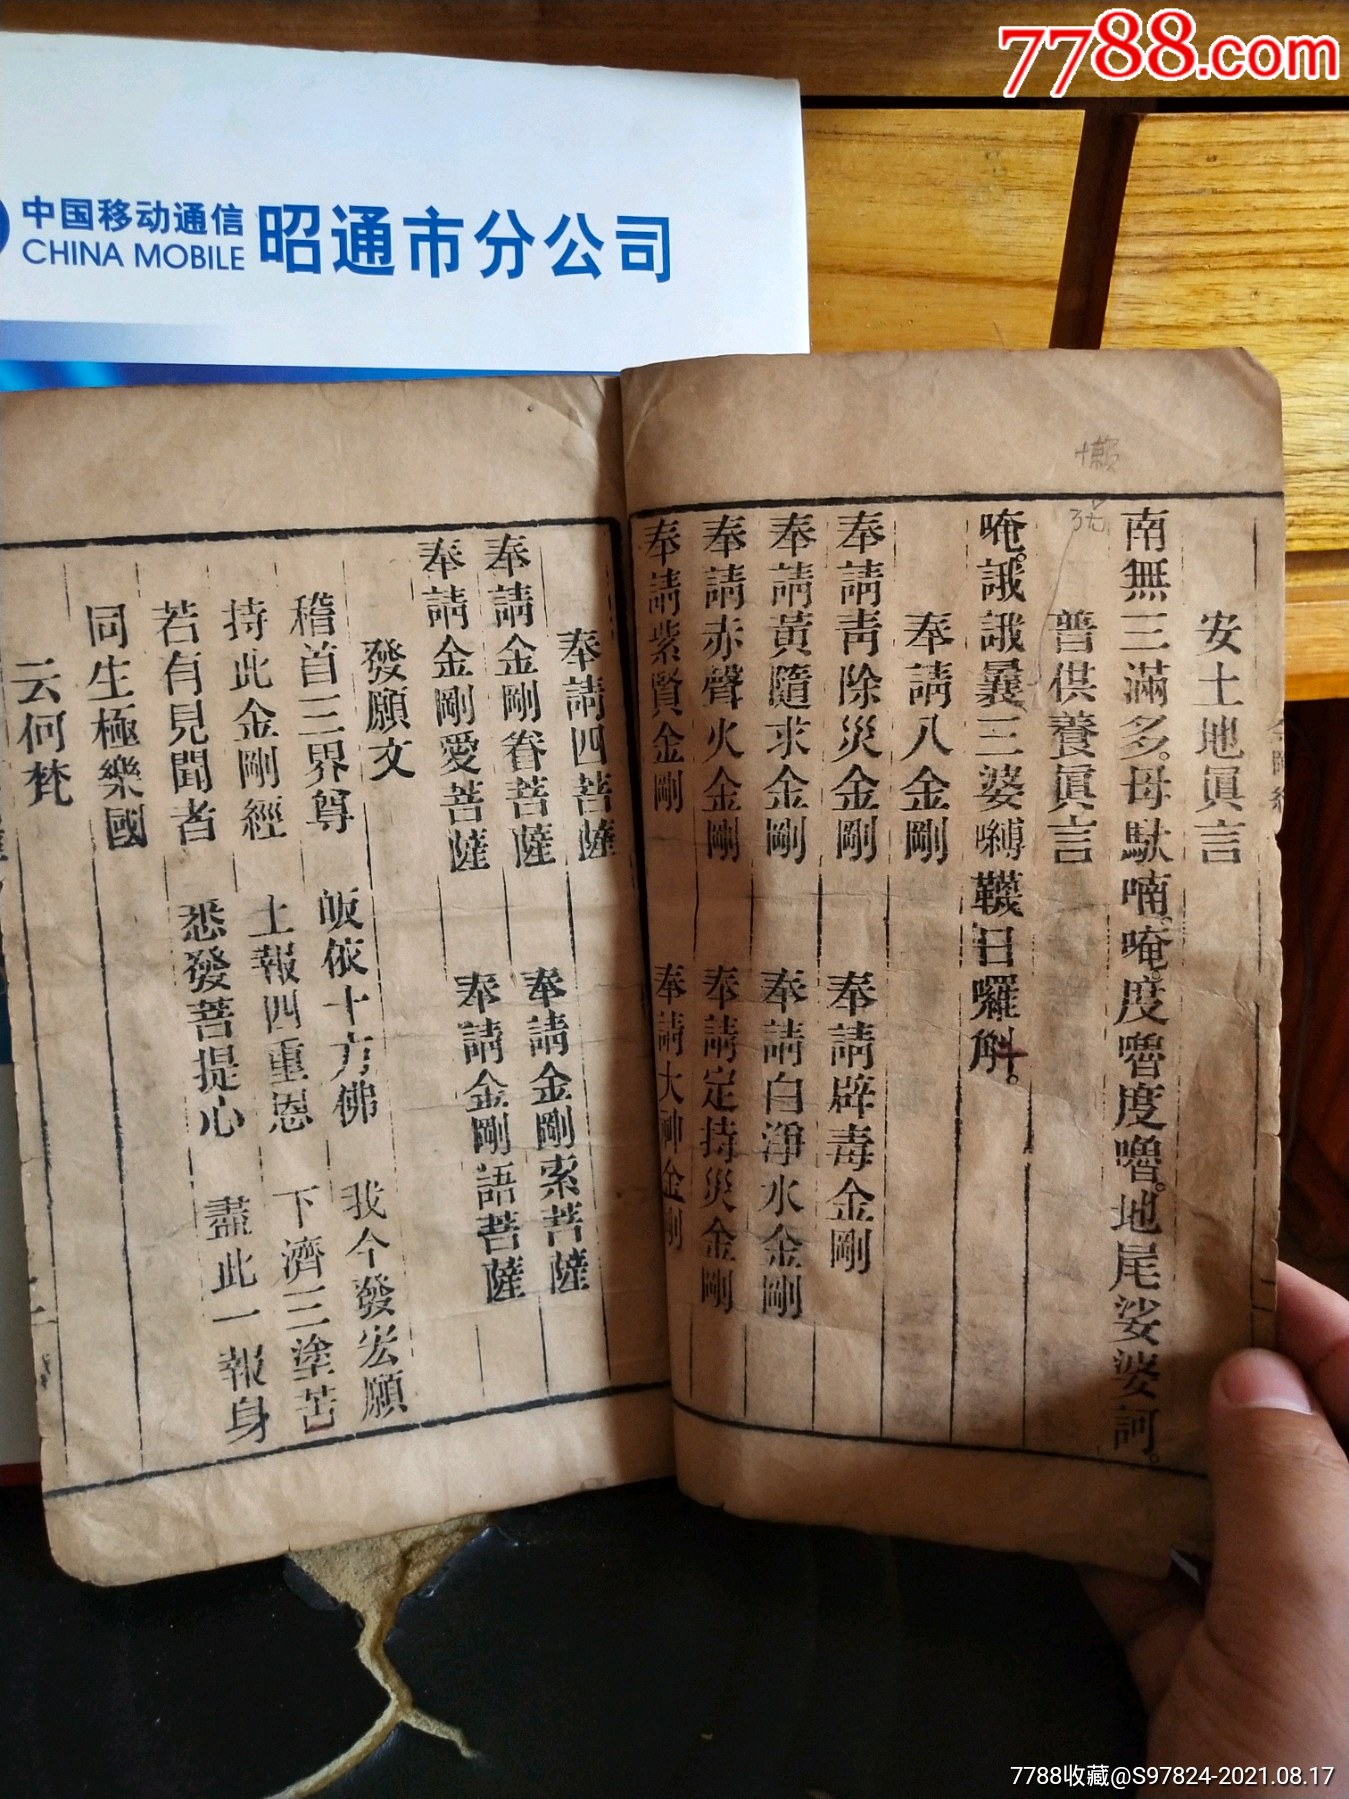 7788.com
中国移动通信
CHINA MOBILE
昭通市分公司
安土地眞言
南無三滿多。母馱喃。唵。度嚕度嚕。地尾娑婆訶。
普供養眞言
唵。誐誐曩三婆嚩韈日囉斛。
奉請八金剛
奉請靑除災金剛 奉請辟毒金剛
奉請黃隨求金剛 奉請白淨水金剛
奉請赤聲火金剛 奉請定持災金剛
奉請紫賢金剛 奉請大神金剛
奉請四菩薩
奉請金剛眷菩薩 奉請金剛索菩薩
奉請金剛愛菩薩 奉請金剛語菩薩
發願文
稽首三界尊 皈依十方佛 我今發宏願
持此金剛經 上報四重恩 下濟三塗苦
若有見聞者 悉發菩提心 盡此一報身
同生極樂國
云何梵
7788收藏@S97824-2021.08.17